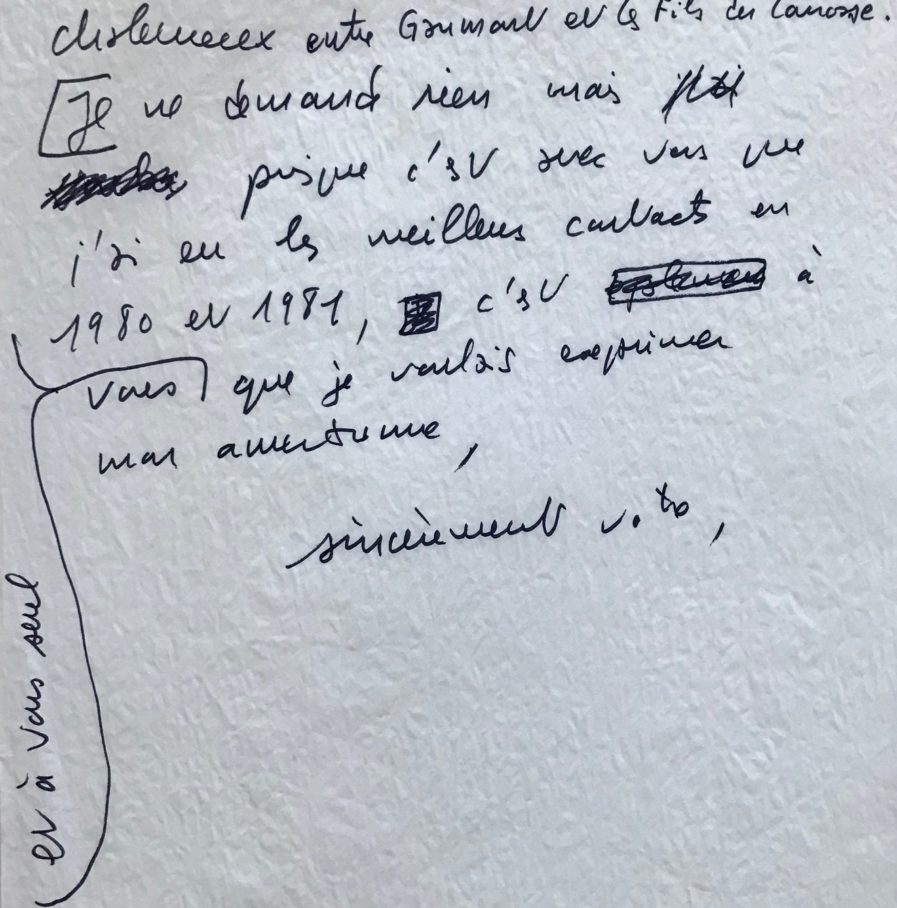 chaleureux entre Gaumont et les Films du Carrosse.
Je ne demande rien mais
puisque c'est avec vous que
j'ai eu les meilleurs contacts en
1980 et 1981, c'est à
vous que je voulais exprimer
mon amertume,
sincèrement votre,
et à vous seul